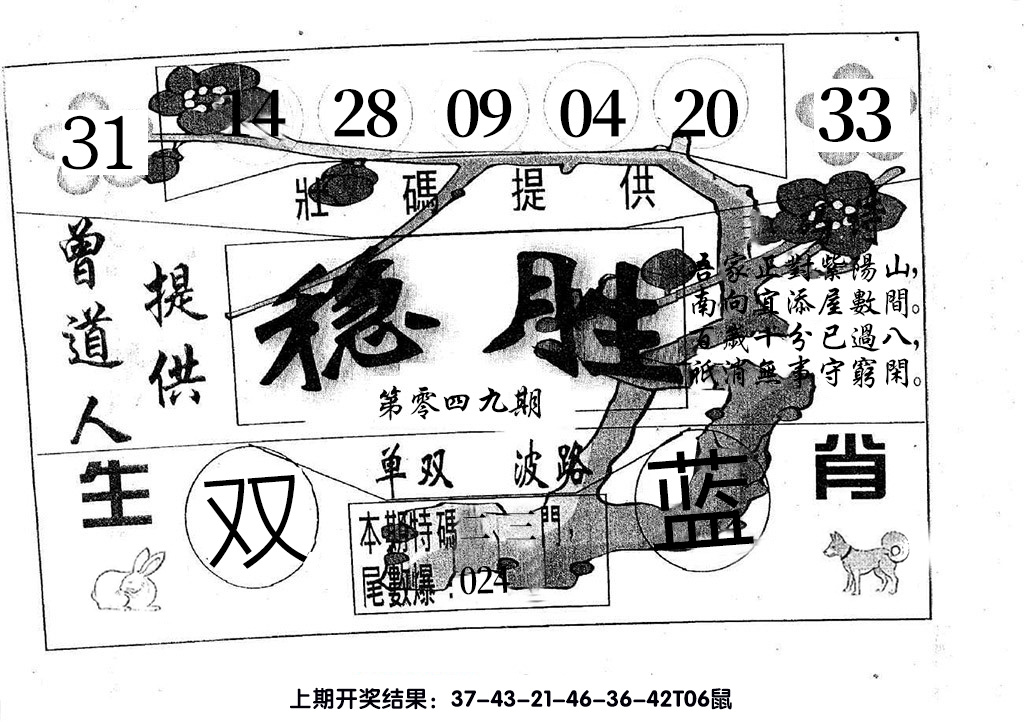 31 14 28 09 04 20 33
壯碼提供
曾道人
提供
穩胜
第零四九期
吾家正對紫陽山,
南向宜添屋數間。
百歲十分已過八,
祇消無事守窮閑。
单双 波路
生肖
双
蓝
本期特碼二、三門,
尾數爆:024
上期开奖结果：37-43-21-46-36-42T06鼠